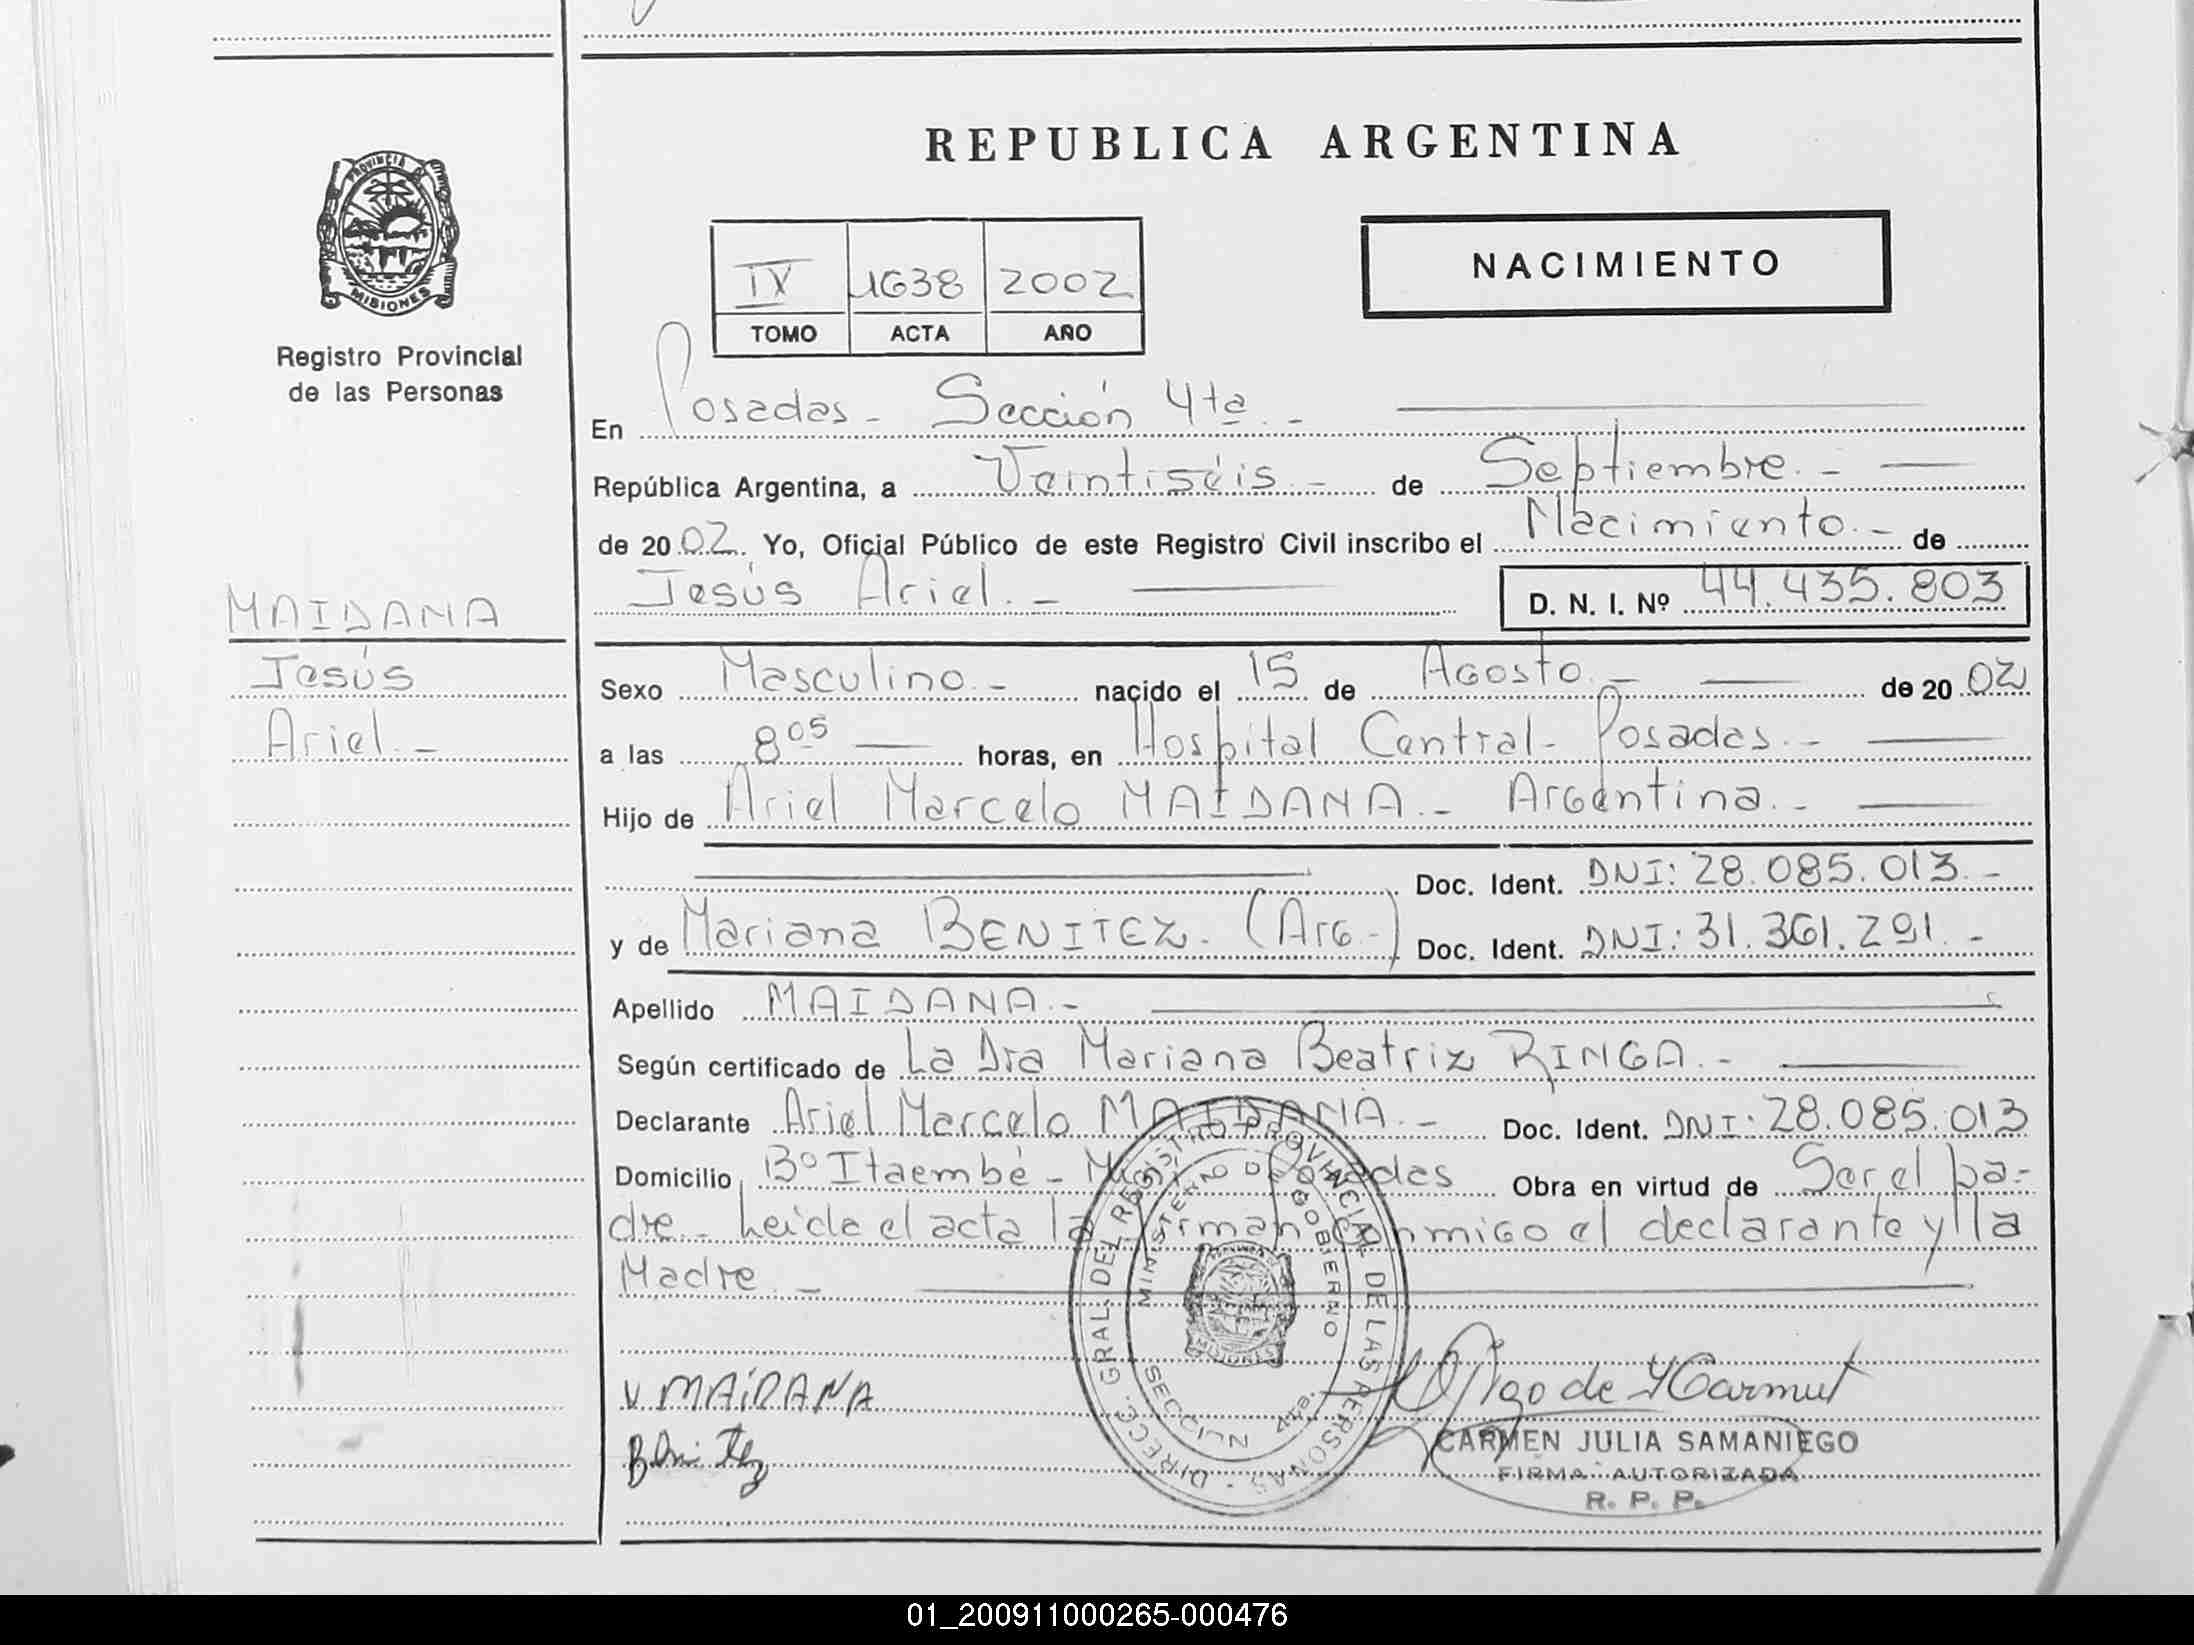 REPUBLICA ARGENTINA
PROVINCIA
MISIONES
Registro Provincial
de las Personas
IV 1638 2002
TOMO ACTA AÑO
NACIMIENTO
En Posadas - Sección 4ta. -
República Argentina, a Veintiséis. - de Septiembre. -
de 2002. Yo, Oficial Público de este Registro Civil inscribo el Nacimiento. - de
Jesús Ariel. - D. N. I. Nº 44.435.803
MAIDANA
Jesús
Ariel. -
Sexo Masculino. - nacido el 15 de Agosto. - de 2002
a las 8 05 horas, en Hospital Central - Posadas. -
Hijo de Ariel Marcelo MAIDANA. - Argentina. -
Doc. Ident. DNI: 28.085.013. -
y de Mariana BENITEZ. (Arg.-) Doc. Ident. DNI: 31.361.291. -
Apellido MAIDANA. -
Según certificado de La Dra Mariana Beatriz RINGA. -
Declarante Ariel Marcelo MAIDANA. - Doc. Ident. DNI: 28.085.013
Domicilio Bº Itaembé - Miní Posadas Obra en virtud de Ser el pa-
dre - Leida el acta la firman conmigo el declarante y la
Madre. -
DIREC. GRAL. DEL REGISTRO PROVINCIAL DE LAS PERSONAS
MINISTERIO DE GOBIERNO
SECCION 4ta.
V MAIDANA
Benitez
CARMEN JULIA SAMANIEGO
FIRMA AUTORIZADA
R. P. P.
01_200911000265-000476